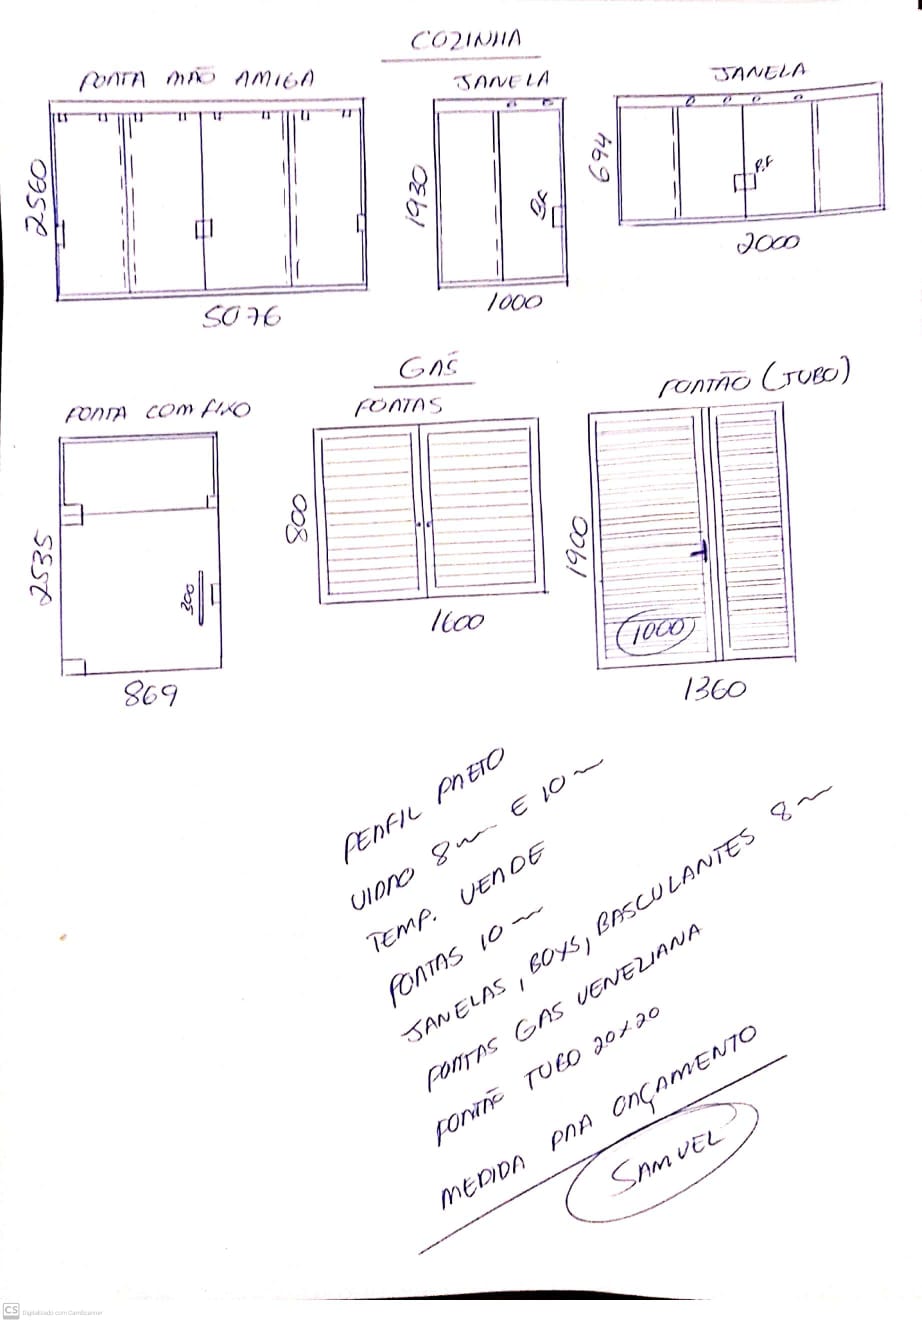 COZINHA
PORTA MÃO AMIGA
JANELA
JANELA
2560
1930
694
P.F
P.F
5076
1000
2000
GÁS
PORTA COM FIXO
PORTAS
PORTÃO (TUBO)
2535
800
1900
300
1000
869
1600
1360
PERFIL PRETO
VIDRO 8 E 10
TEMP. VERDE
PORTAS 10
JANELAS, BOXS, BASCULANTES 8
PORTAS GAS VENEZIANA
PORTÃO TUBO 20x20
MEDIDA PRA ORÇAMENTO
SAMUEL
CS Digitalizado com CamScanner